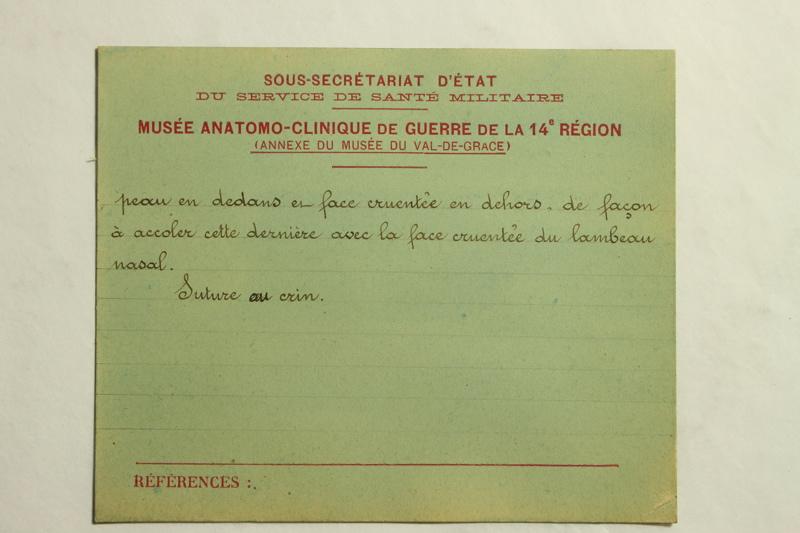 SOUS-SECRÉTARIAT D'ÉTAT
DU SERVICE DE SANTÉ MILITAIRE
MUSÉE ANATOMO-CLINIQUE DE GUERRE DE LA 14e RÉGION
(ANNEXE DU MUSÉE DU VAL-DE-GRACE)
peau en dedans et face cruentée en dehors, de façon
à accoler cette dernière avec la face cruentée du lambeau
nasal.
Suture au crin.
RÉFÉRENCES :